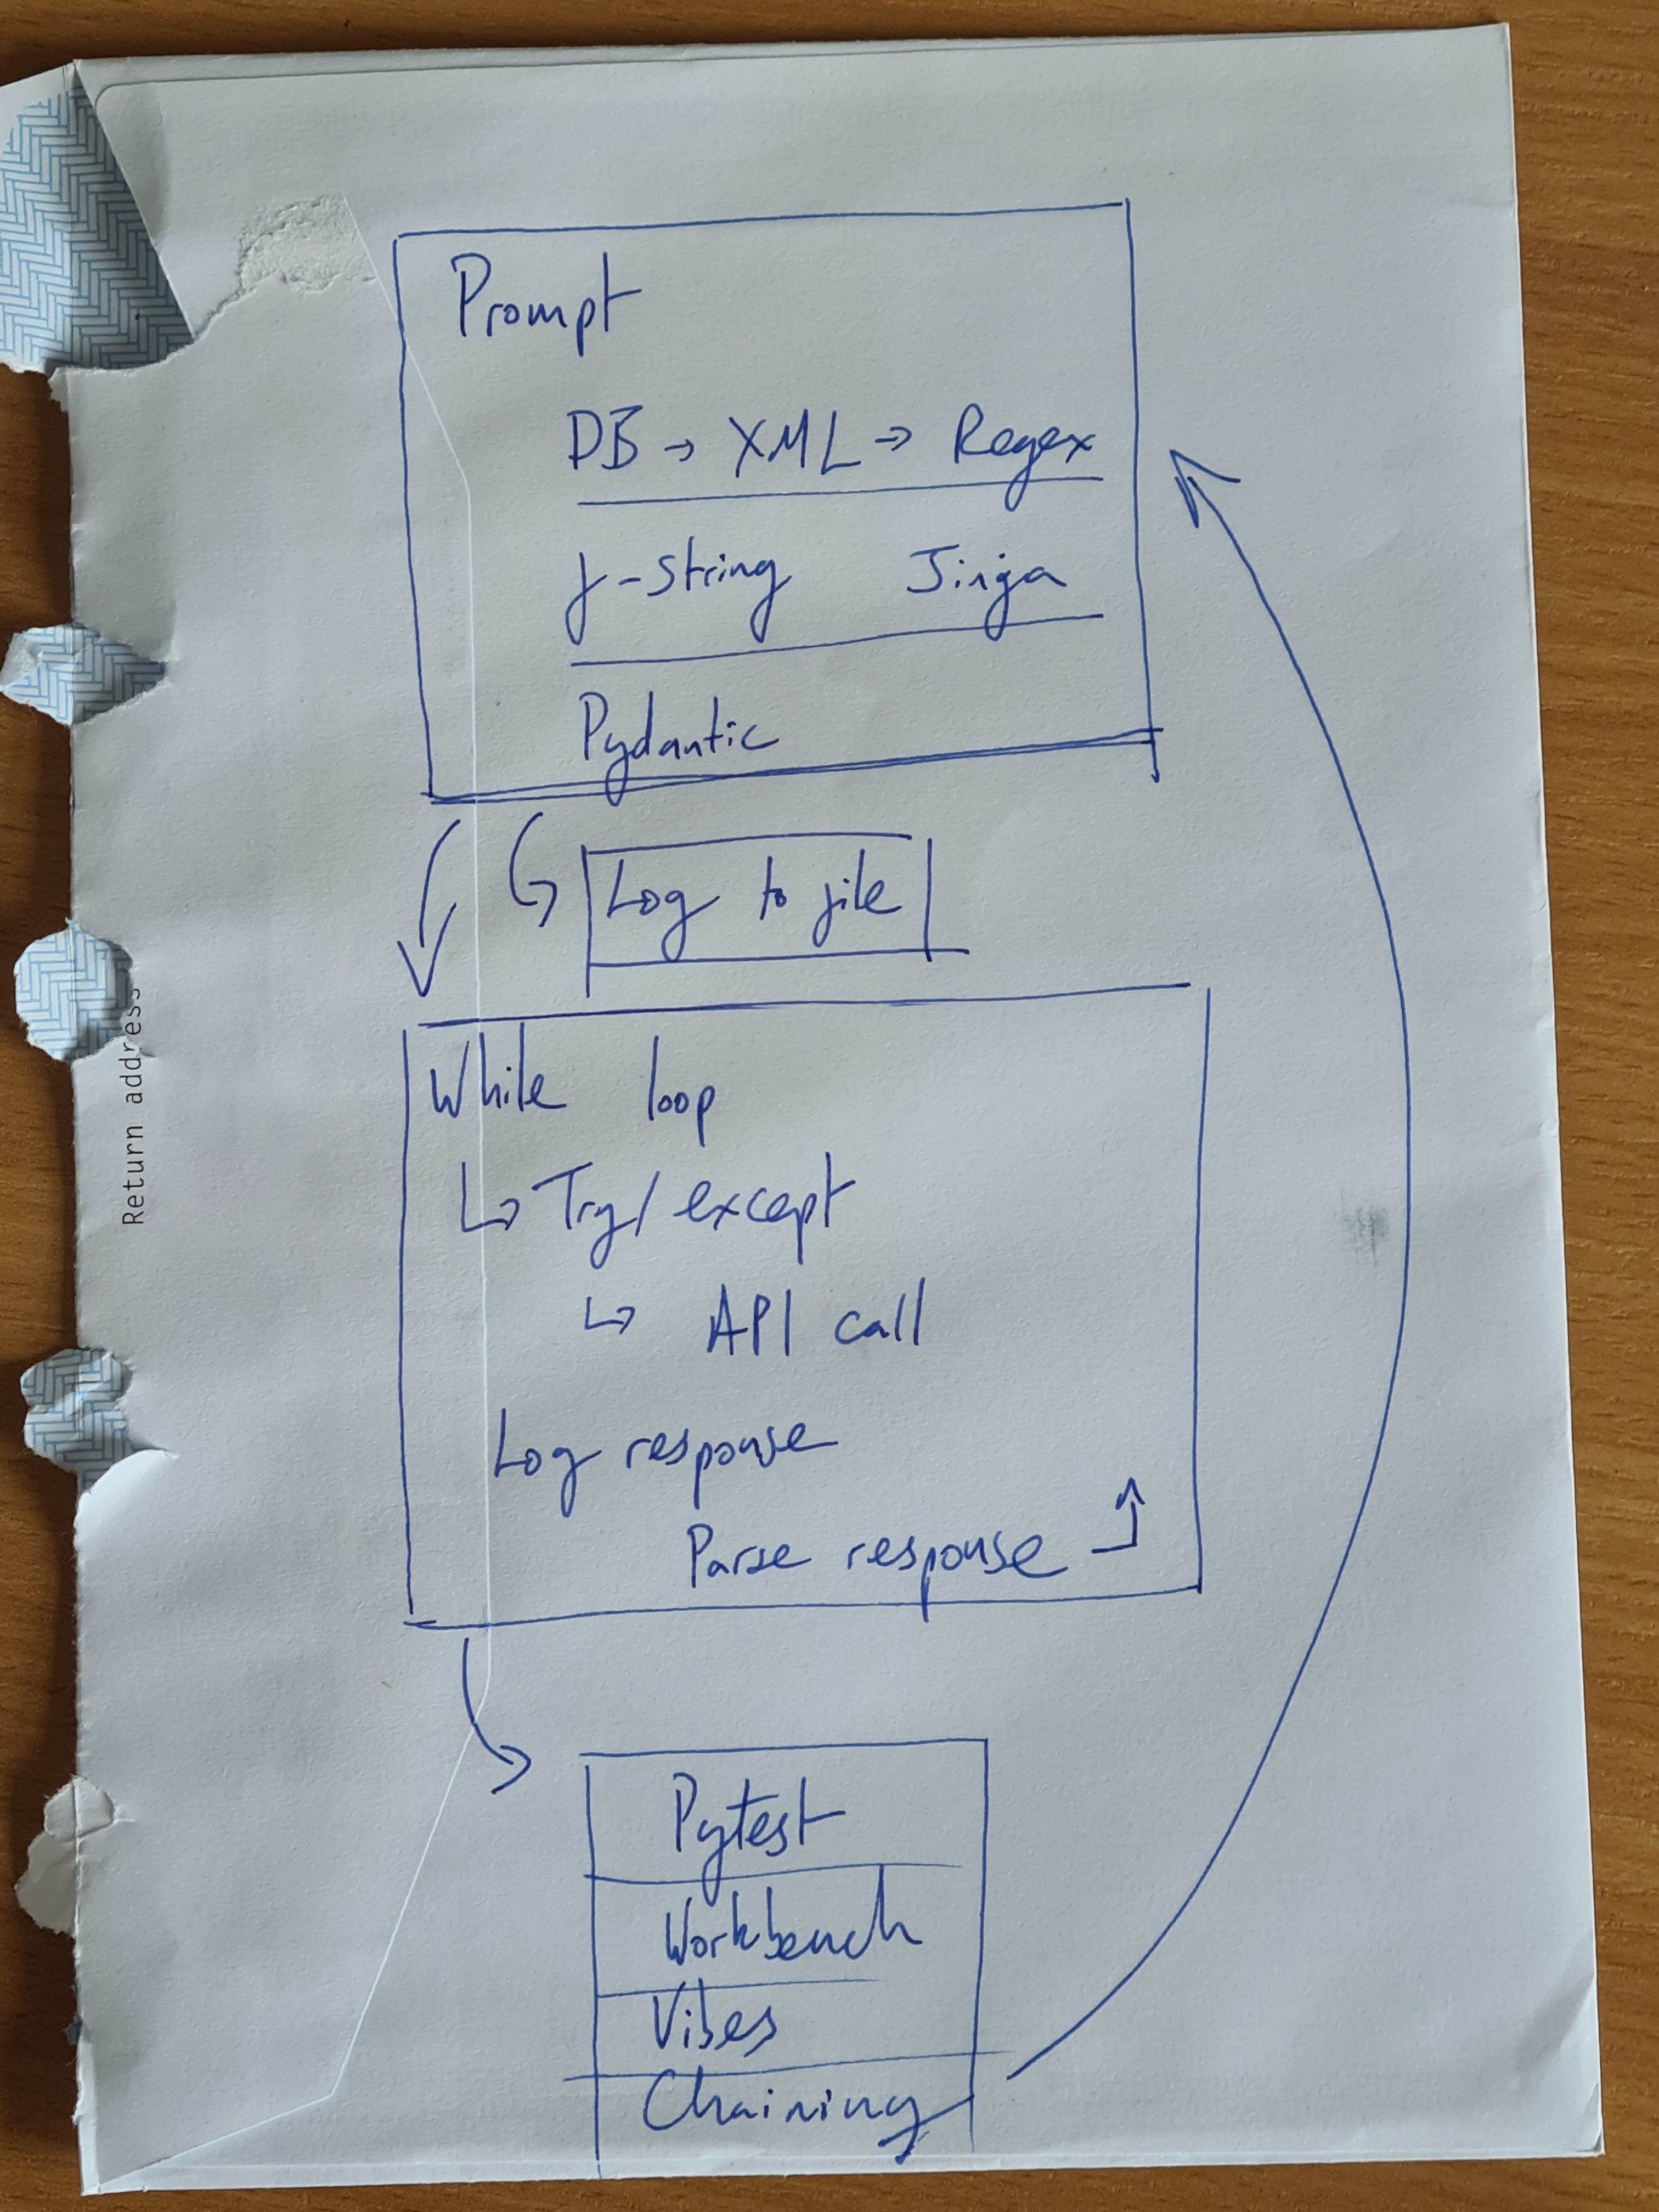 Prompt
DB → XML → Regex
f-string Jinja
Pydantic
Log to file
While loop
↳ Try/except
↳ API call
Log response
Parse response
Pytest
Workbench
Vibes
Chaining
Return address